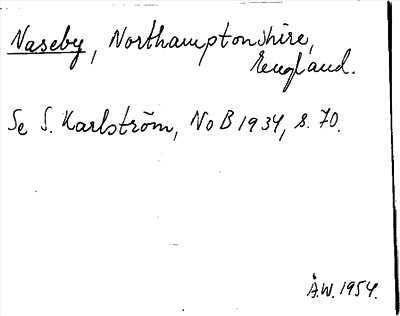 Naseby, Northamptonshire,
England.
Se S. Karlström, NoB 1934, s. 70.
Å.W. 1954.